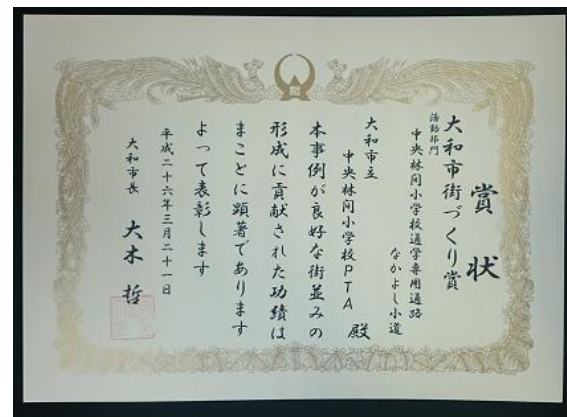 賞状
大和市街づくり賞
活動部門
中央林間小学校通学専用通路
なかよし小道
大和市立
中央林間小学校PTA 殿
本事例が良好な街並みの
形成に貢献された功績は
まことに顕著であります
よって表彰します
平成二十六年三月二十一日
大和市長 大木 哲